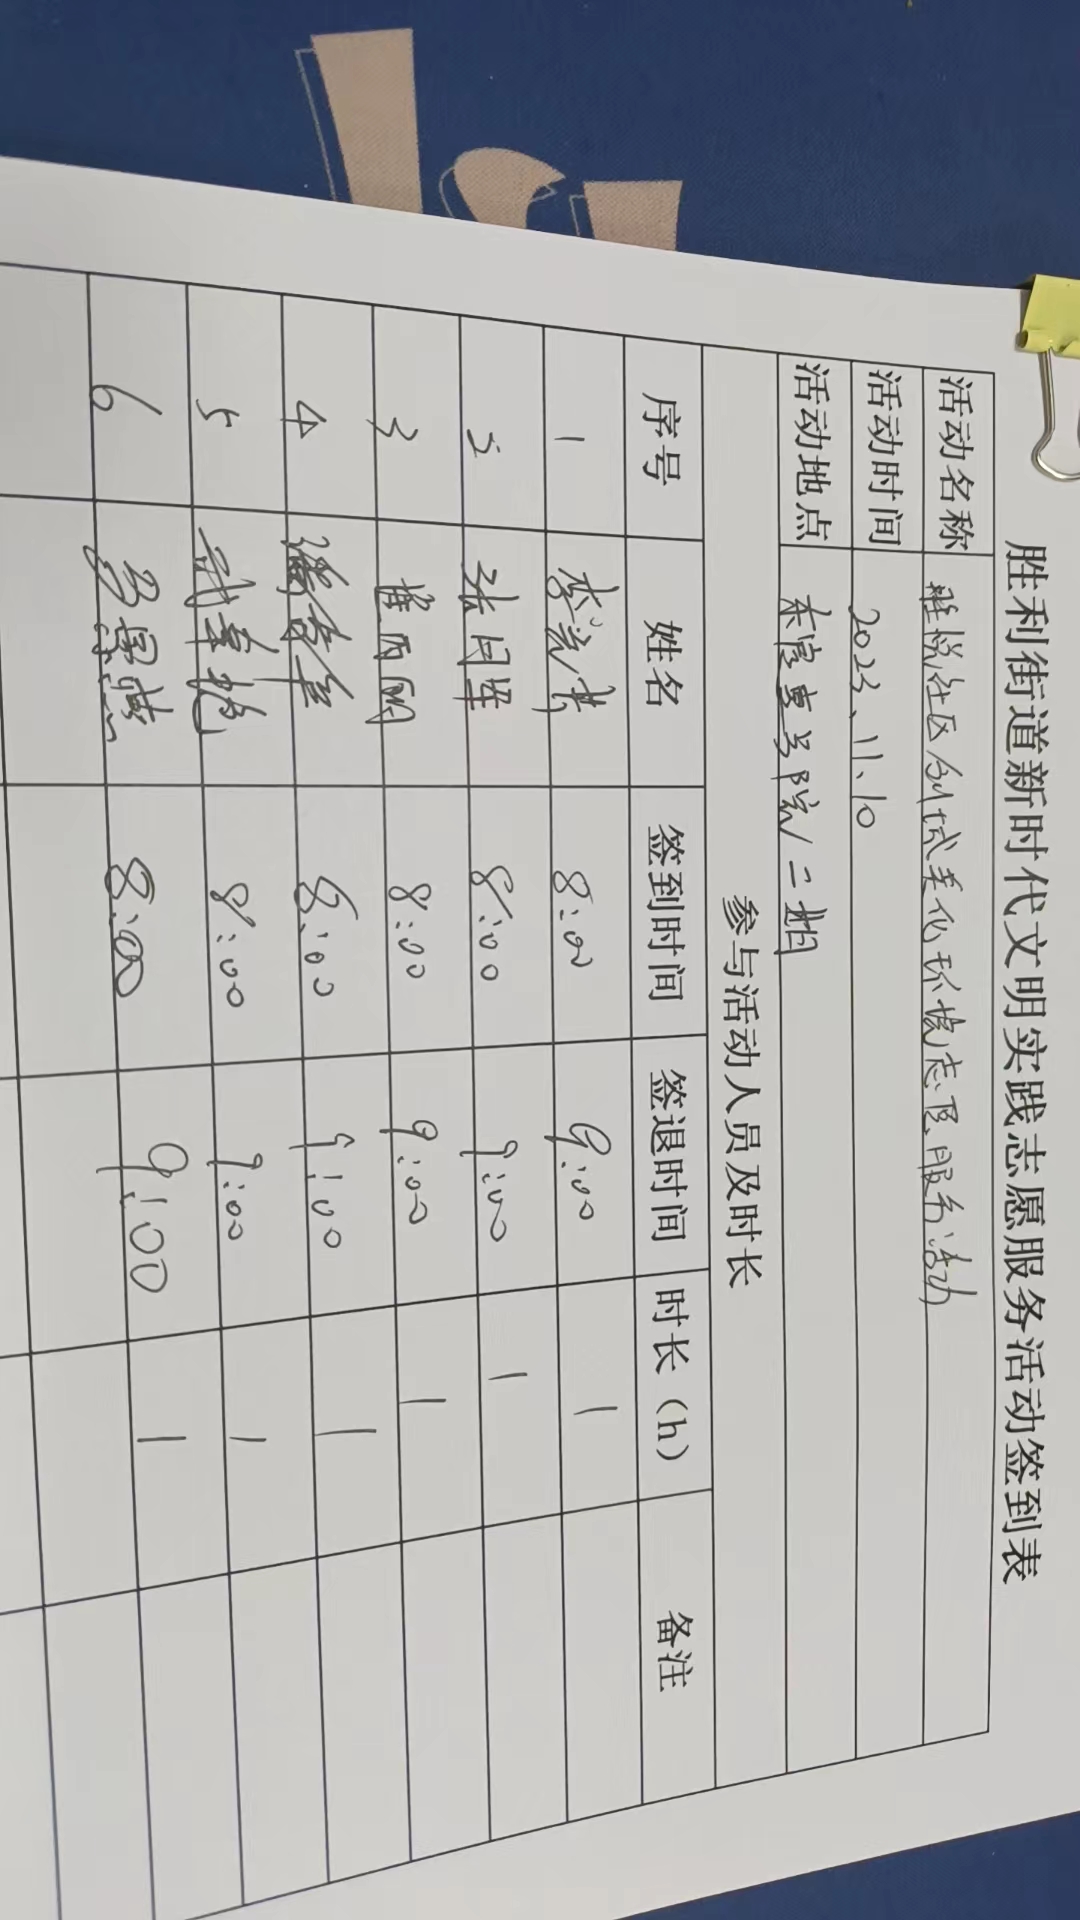 胜利街道新时代文明实践志愿服务活动签到表
活动名称 胜悦社区创城美化环境志愿服务活动
活动时间 2023、11、10
活动地点
参与活动人员及时长
序号 姓名 签到时间 签退时间 时长（h） 备注
1 8:00 9:00 1
2 张 8:00 9:00 1
3 崔丙 8:00 9:00 1
4 8:00 9:00 1
5 8:00 9:00 1
6 8:00 9:00 1